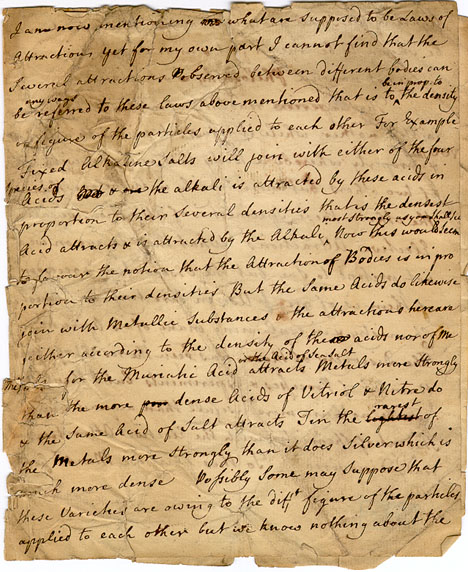 I am now mentioning what are supposed to be Laws of
Attractions yet for my own part I cannot find that the
Several attractions observed between different bodies can
any ways being prop. to
be referred to these laws above mentioned that is to the density
or figure of the particles applied to each other For Example
Fixed Alkaline Salts will join with either of the four
species of
Acids & the alkali is attracted by these acids in
proportion to their several densities that is the densest
most strongly as you shall see
Acid attracts & is attracted by the Alkali Now this would seem
to favour the notion that the Attraction of Bodies is in pro
portion to their densities But the same Acids do likewise
join with Metallic Substances & the attractions here are
neither according to the density of the acids nor of Me
or the Acid of Sea Salt
for the Muriatic Acid attracts Metals more strongly
than the more dense Acids of Vitriol & Nitre do
rarest
& the same Acid of Salt attracts Tin the lightest of
the Metals more strongly than it does Silver which is
much more dense Possibly Some may suppose that
these Varieties are owing to the difft figure of the particles
applied to each other but we know nothing about the